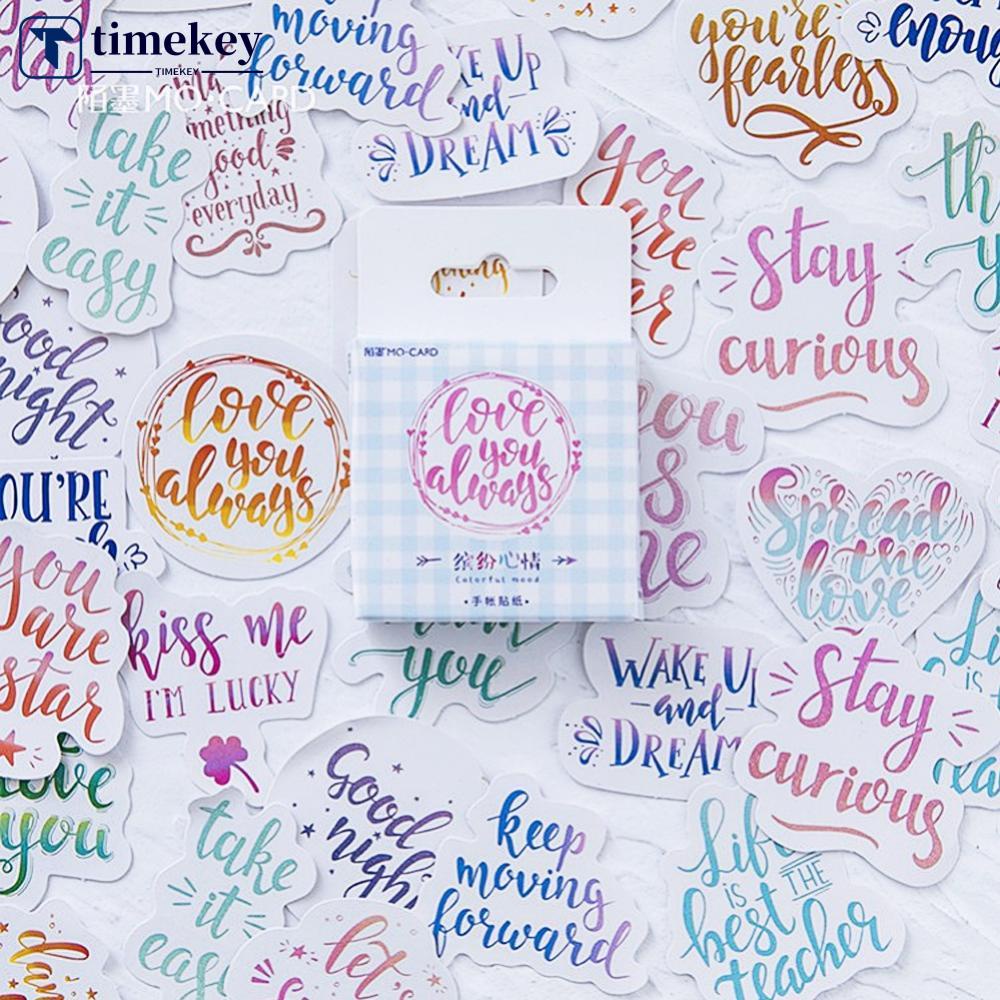 timekey
TIMEKEY
陌墨 MO·CARD
moving
forward
UP
and
DREAM
you're
fearless
enough
take
it
easy
something
good
everyday
you
are
star
stay
curious
good
night.
love
you
always
陌墨 MO-CARD
love
you
always
缤纷心情
Colorful mood
·手帐贴纸·
you
Spread
the
love
YOU'RE
you
are
star
kiss me
I'M LUCKY
you
WAKE UP
-and-
DREAM
stay
curious
love
you
good
night
take
it
easy
keep
moving
forward
let's
Life
IS THE
best
teacher